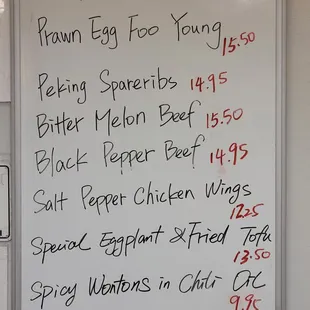 Prawn Egg Foo Young 15.50
Peking Spareribs 14.95
Bitter Melon Beef 15.50
Black Pepper Beef 14.95
Salt Pepper Chicken Wings
12.25
Special Eggplant & Fried Tofu
13.50
Spicy Wontons in Chili Oil
9.95